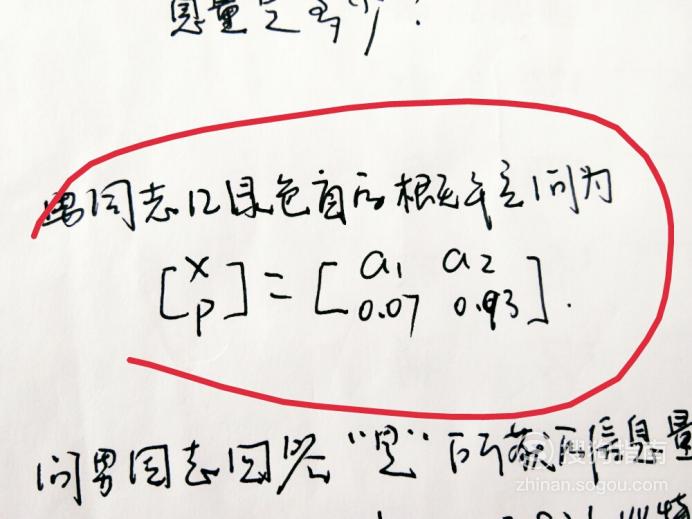 息量是多少?
男同志红绿色盲的概率空间为
[X P] = [a1 a2
0.07 0.93].
问男同志回答"是"所获的信息量
搜狗指南
zhinan.sogou.com